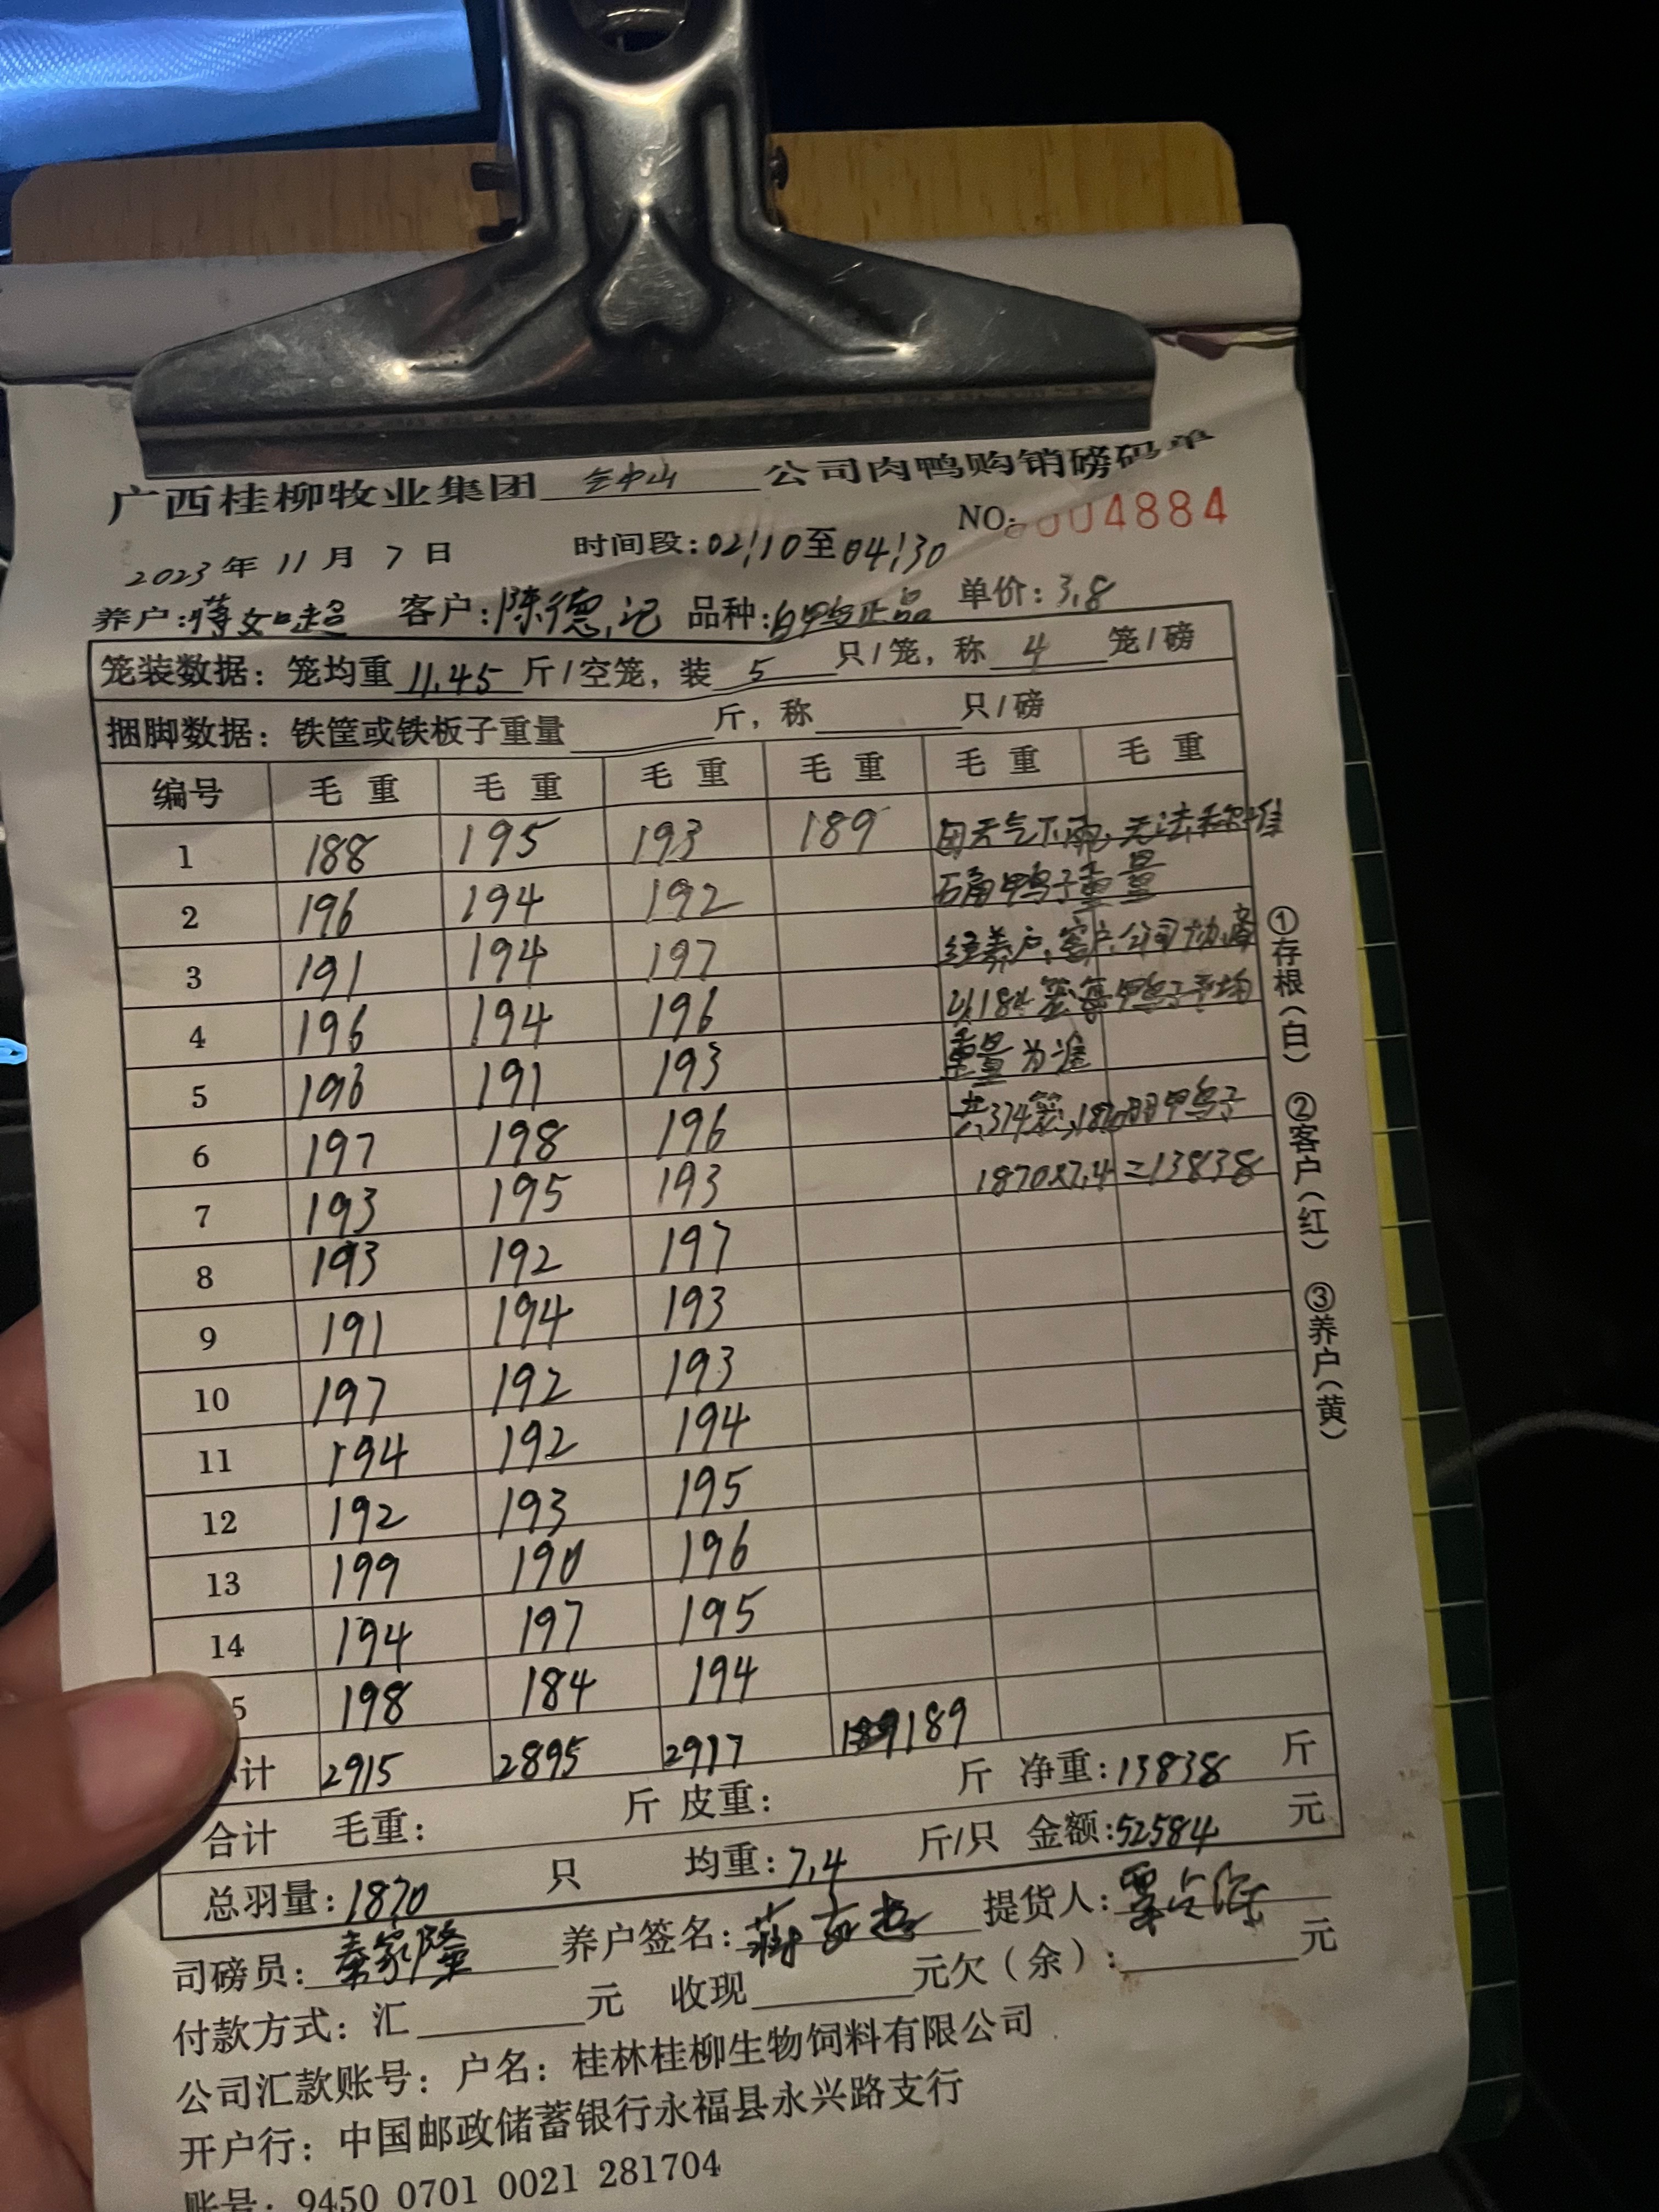 广西桂柳牧业集团 公司肉鸭购销磅码单
NO: 0004884
2023年 11月 7日 时间段:02:10至04:30
养户:蒋如超 客户:陈德记 品种:白鸭正品 单价:3.8
笼装数据:笼均重 11.45 斤/空笼,装 5 只/笼,称 4 笼/磅
捆脚数据:铁筐或铁板子重量 斤,称 只/磅
编号 毛重 毛重 毛重 毛重 毛重 毛重
1 188 195 193 189 因天气下雨,无法称准
2 196 194 192 石角鸭子重量
3 191 194 197 经养户,客户,公司协商
4 196 194 196 以184笼每鸭子平均
5 196 191 193 重量为准
6 197 198 196 共374笼,1870羽鸭子
7 193 195 193 1870×7.4=13838
8 193 192 197
9 191 194 193
10 197 192 193
11 194 192 194
12 192 193 195
13 199 190 196
14 194 197 195
5 198 184 194
计 2915 2895 2917 189
合计 毛重: 斤 皮重: 斤 净重:13838 斤
总羽量:1870 只 均重:7.4 斤/只 金额:52584 元
司磅员:秦家隆 养户签名: 提货人:
付款方式:汇 元 收现 元欠(余): 元
公司汇款账号:户名:桂林桂柳生物饲料有限公司
开户行:中国邮政储蓄银行永福县永兴路支行
账号:9450 0701 0021 281704
①存根(白) ②客户(红) ③养户(黄)